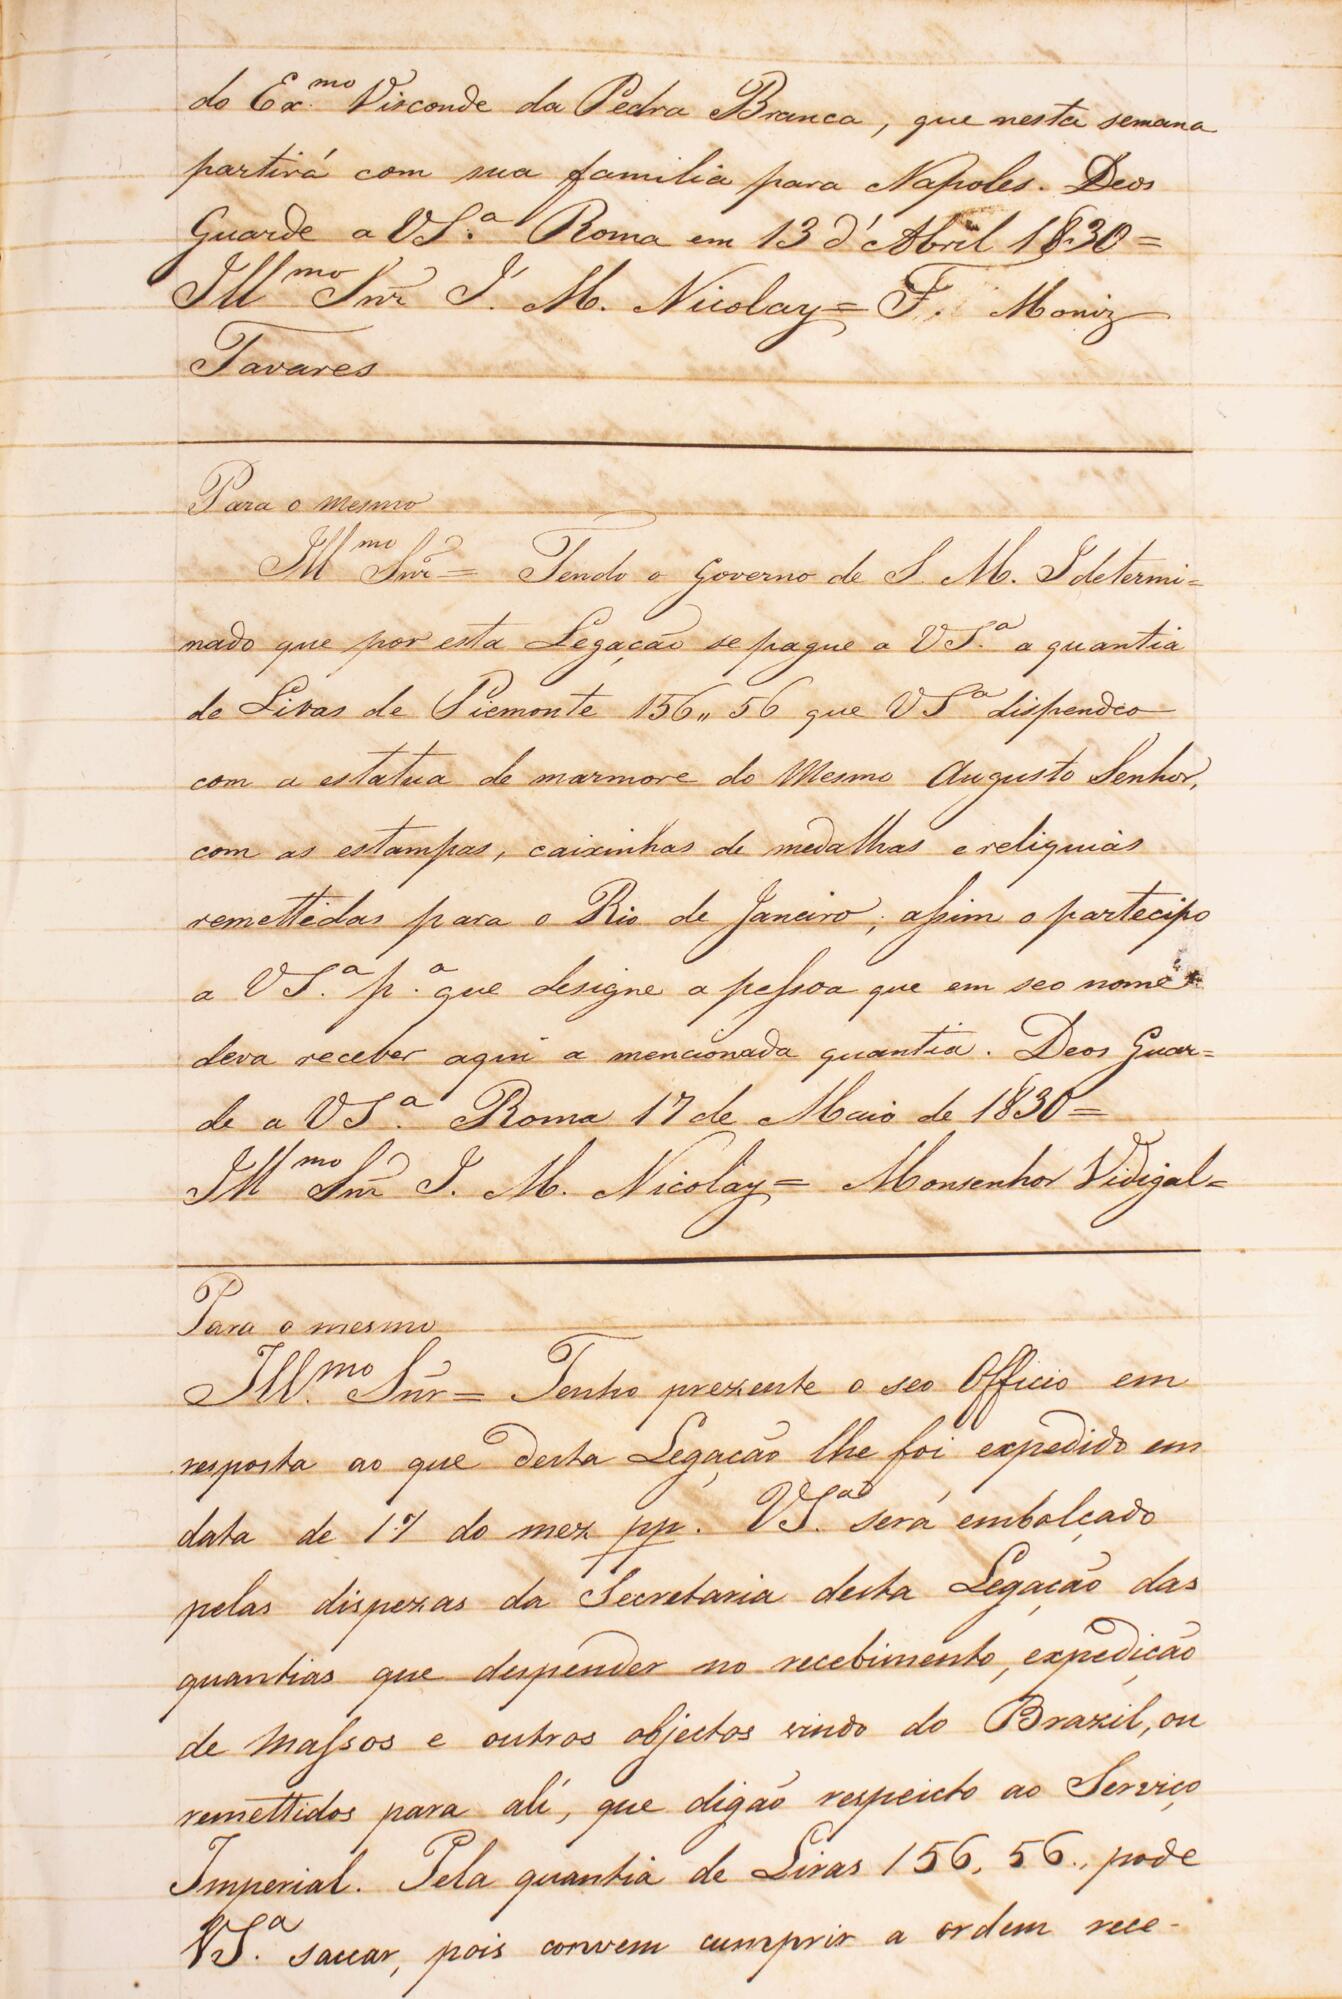 do Ex.mo Visconde da Pedra Branca, que nesta semana
partirá com sua familia para Napoles. Deos
Guarde a VS.a Roma em 13 d'Abril 1830=
Illmo Snr J. M. Nicolay= F. Moniz
Tavares
Para o mesmo
Illmo Snr= Tendo o Governo de S. M. I determi=
nado que por esta Legação se pague a VS.a a quantia
de Liras de Piemonte 156,,56 que VSa dispendeo
com a estatua de marmore do Mesmo Augusto Senhor,
com as estampas, caixinhas de medalhas e reliquias
remettidas para o Rio de Janeiro, assim o partecipo
a VS.a p.a que designe a pessoa que em seo nome
deva receber aqui a mencionada quantia. Deos Guar=
de a VS.a Roma 17 de Maio de 1830=
Illmo Snr J. M. Nicolay= Monsenhor Vidigal=
Para o mesmo
Ill.mo Snr= Tenho prezente o seo Officio em
resposta ao que desta Legação lhe foi expedido em
data de 17 do mez pp. VS.a será embolçado
pelas dispezas da Secretaria desta Legação das
quantias que despender no recebimento, expedição
de Massos e outros objectos vindo do Brazil, ou
remettidos para alí, que digão respeicto ao Serviço
Imperial. Pela quantia de Liras 156, 56., pode
VS.a saccar, pois convem cumprir a ordem rece-